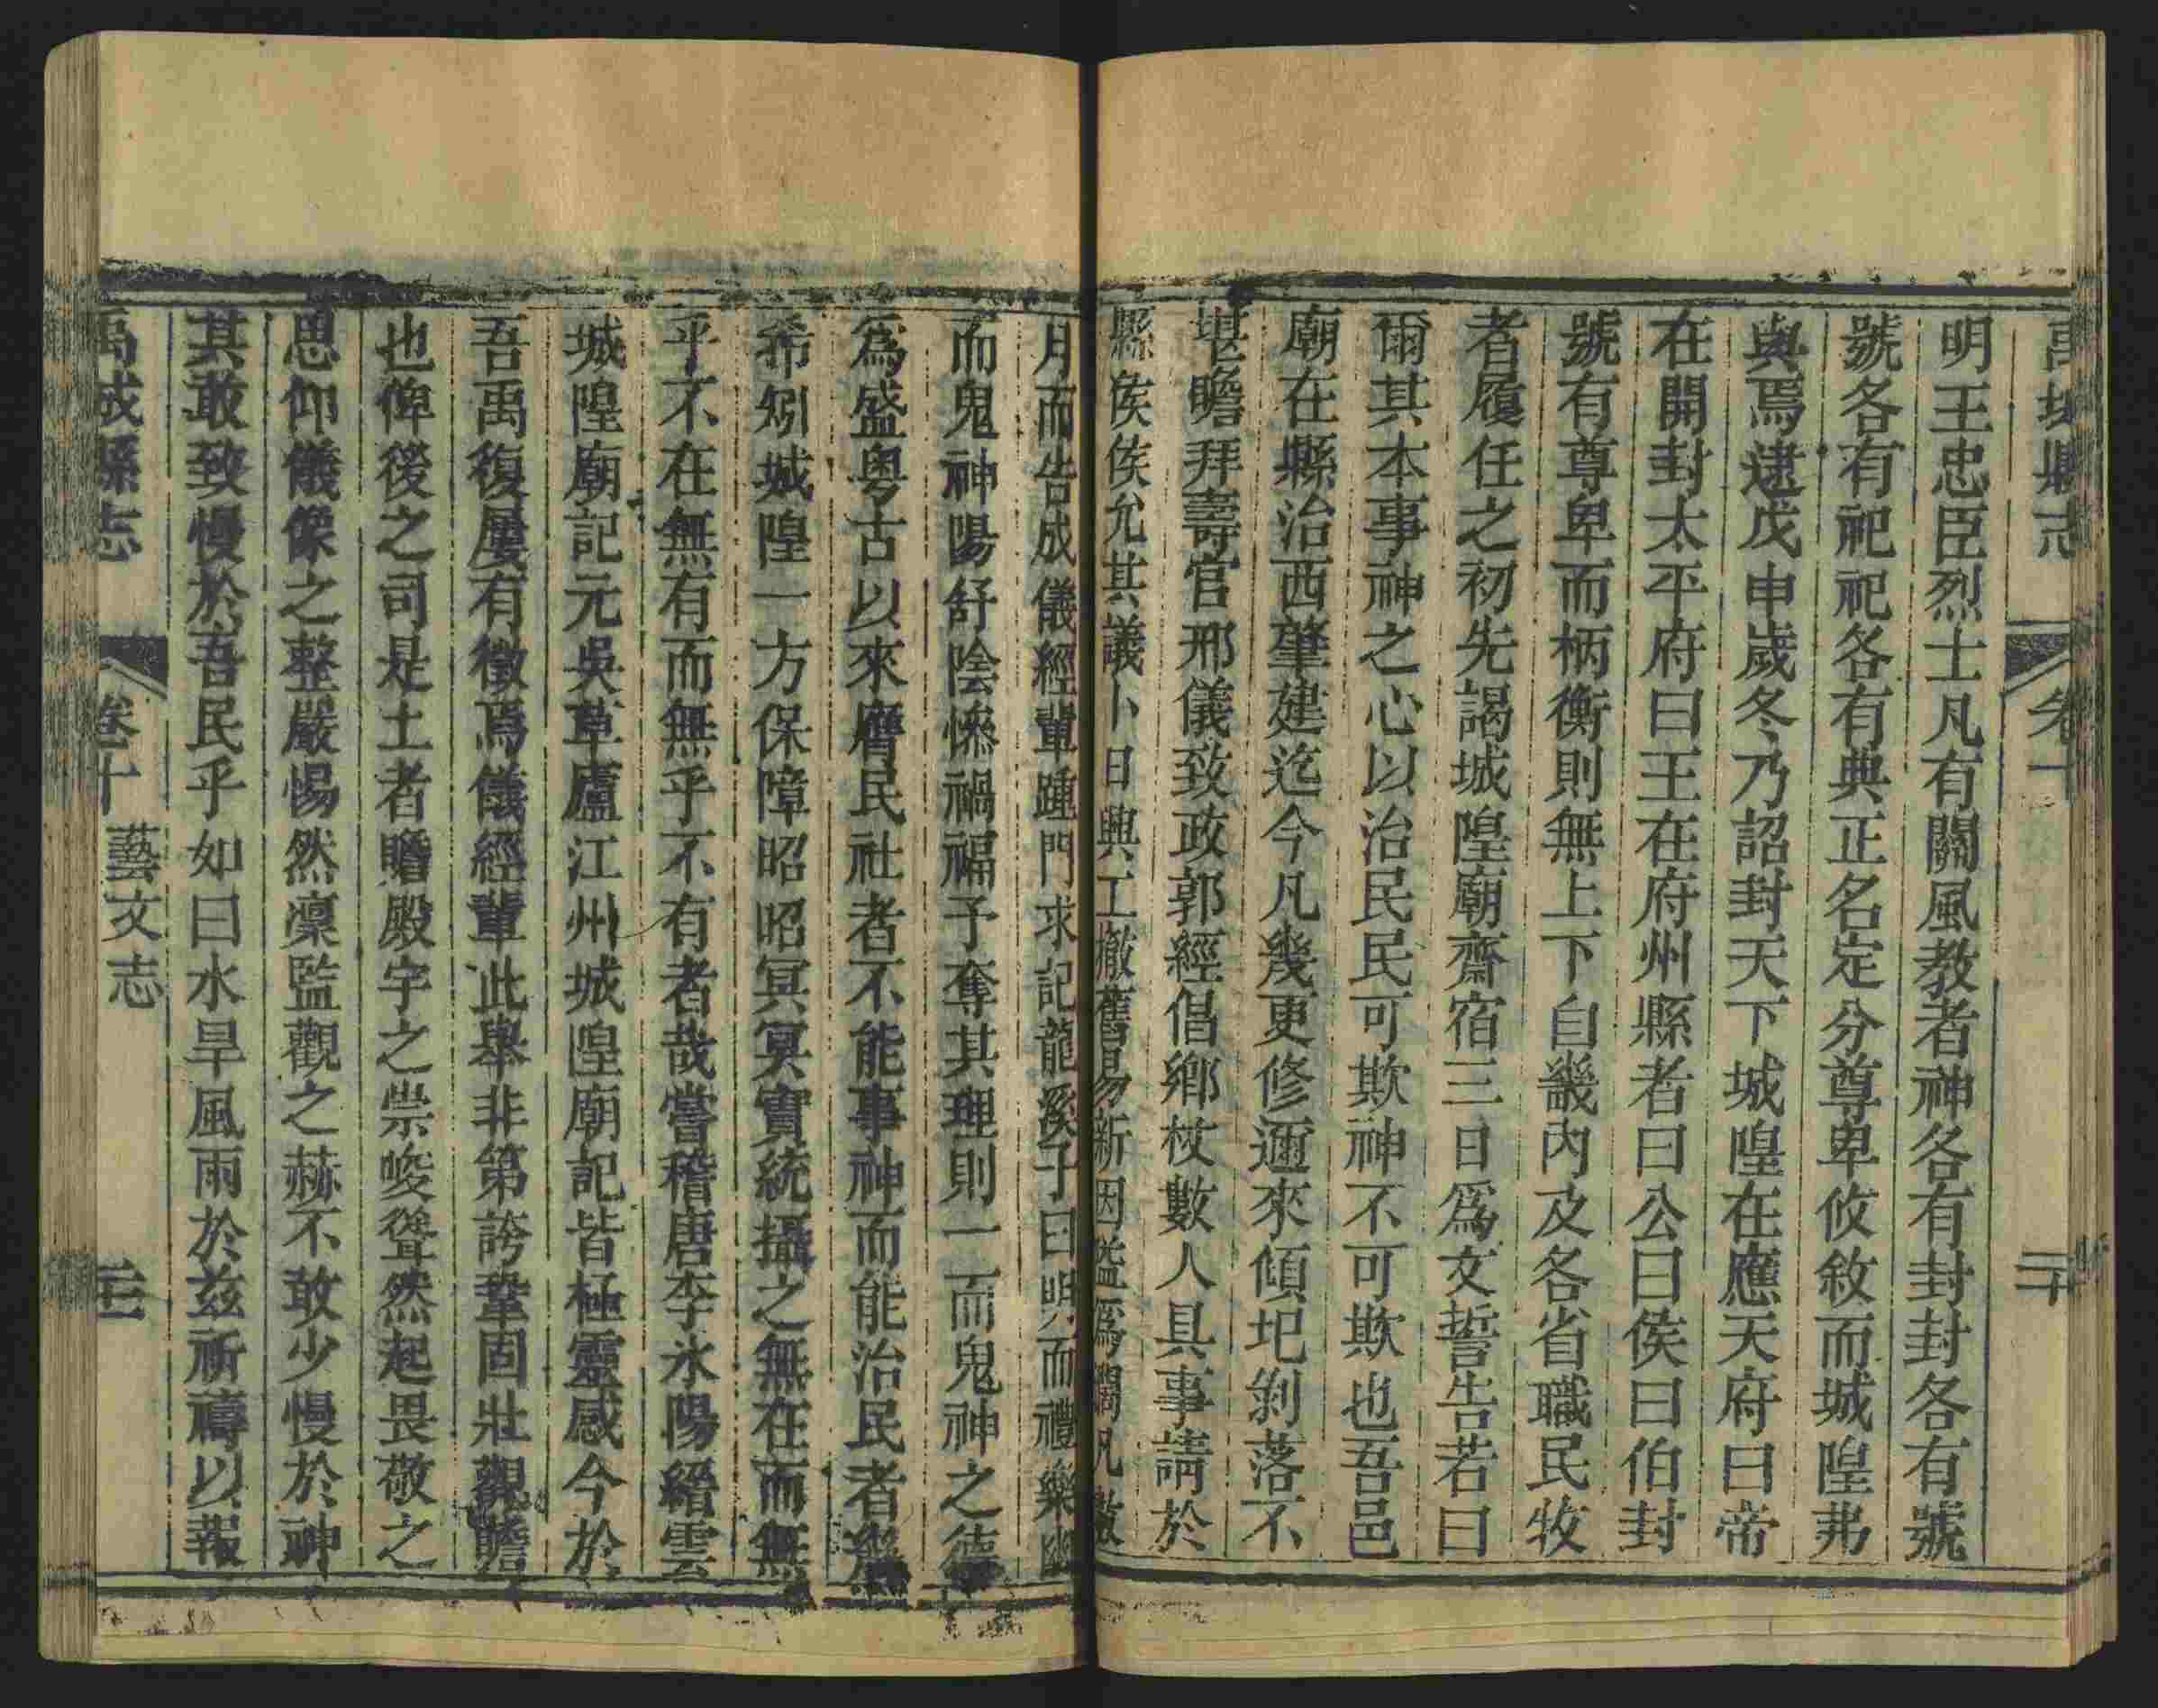 禹城縣志
卷十
二十
明王忠臣烈士凡有關風教者神各有封封各有號
號各有祀祀各有典正名定分尊卑攸敘而城隍弗
與焉逮戊申歲冬乃詔封天下城隍在應天府曰帝
在開封太平府曰王在府州縣者曰公曰侯曰伯封
號有尊卑而柄衡則無上下自畿內及各省職民牧
者履任之初先謁城隍廟齋宿三日爲文誓告若曰
爾其本事神之心以治民民可欺神不可欺也吾邑
廟在縣治西肇建迄今凡幾更修邇來傾圯剝落不
堪瞻拜壽官邢儀致政郭經倡鄉杖數人具事請於
縣侯侯允其議卜日興工撤舊易新因隘爲濶凡數
月而告成儀經輩踵門求記龍溪子曰明而禮樂幽
而鬼神陽舒陰慘禍福予奪其理則一而鬼神之德
爲盛粤古以來膺民社者不能事神而能治民者幾
希矧城隍一方保障昭昭冥冥實統攝之無在而無
乎不在無有而無乎不有者哉嘗稽唐李氷陽縉雲
城隍廟記元吳草廬江州城隍廟記皆極靈感今於
吾禹復屢有徵焉儀經輩此舉非第誇鞏固壯觀瞻
也俾後之司是土者瞻殿宇之崇峻聳然起畏敬之
思仰儀像之整嚴惕然凜監觀之赫不敢少慢於神
其敢致慢於吾民乎如曰水旱風雨於兹祈禱以報
禹城縣志
卷十
藝文志